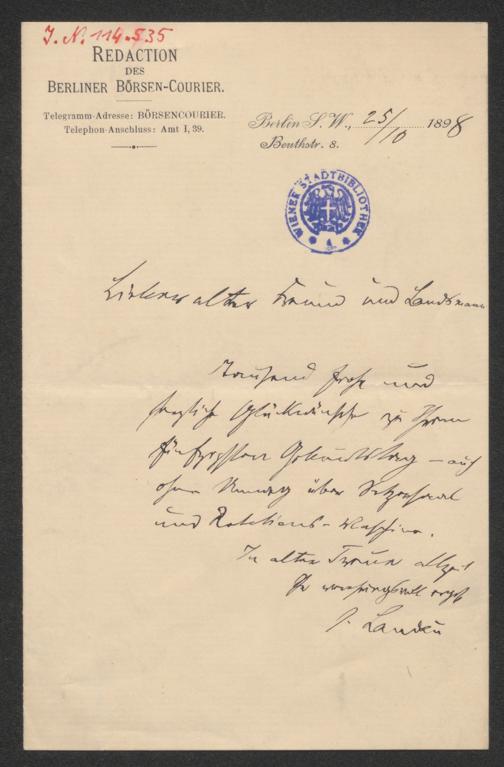 J. N. 114.535
REDACTION
DES
BERLINER BÖRSEN-COURIER.
Telegramm-Adresse: BÖRSENCOURIER.
Telephon-Anschluss: Amt I, 39.
Berlin S. W., 25/10 1898
Beuthstr. 8.
WIENER STADTBIBLIOTHEK
Lieber alter Freund und Landsmann
Tausend frohe und
herzliche Glückwünsche zu Ihrem
fünfzigsten Geburtstag – auch
ohne über Setzersaal
und Rotations-Maschine.
In alter Treue allzeit
Ihr ergb
I. Landau